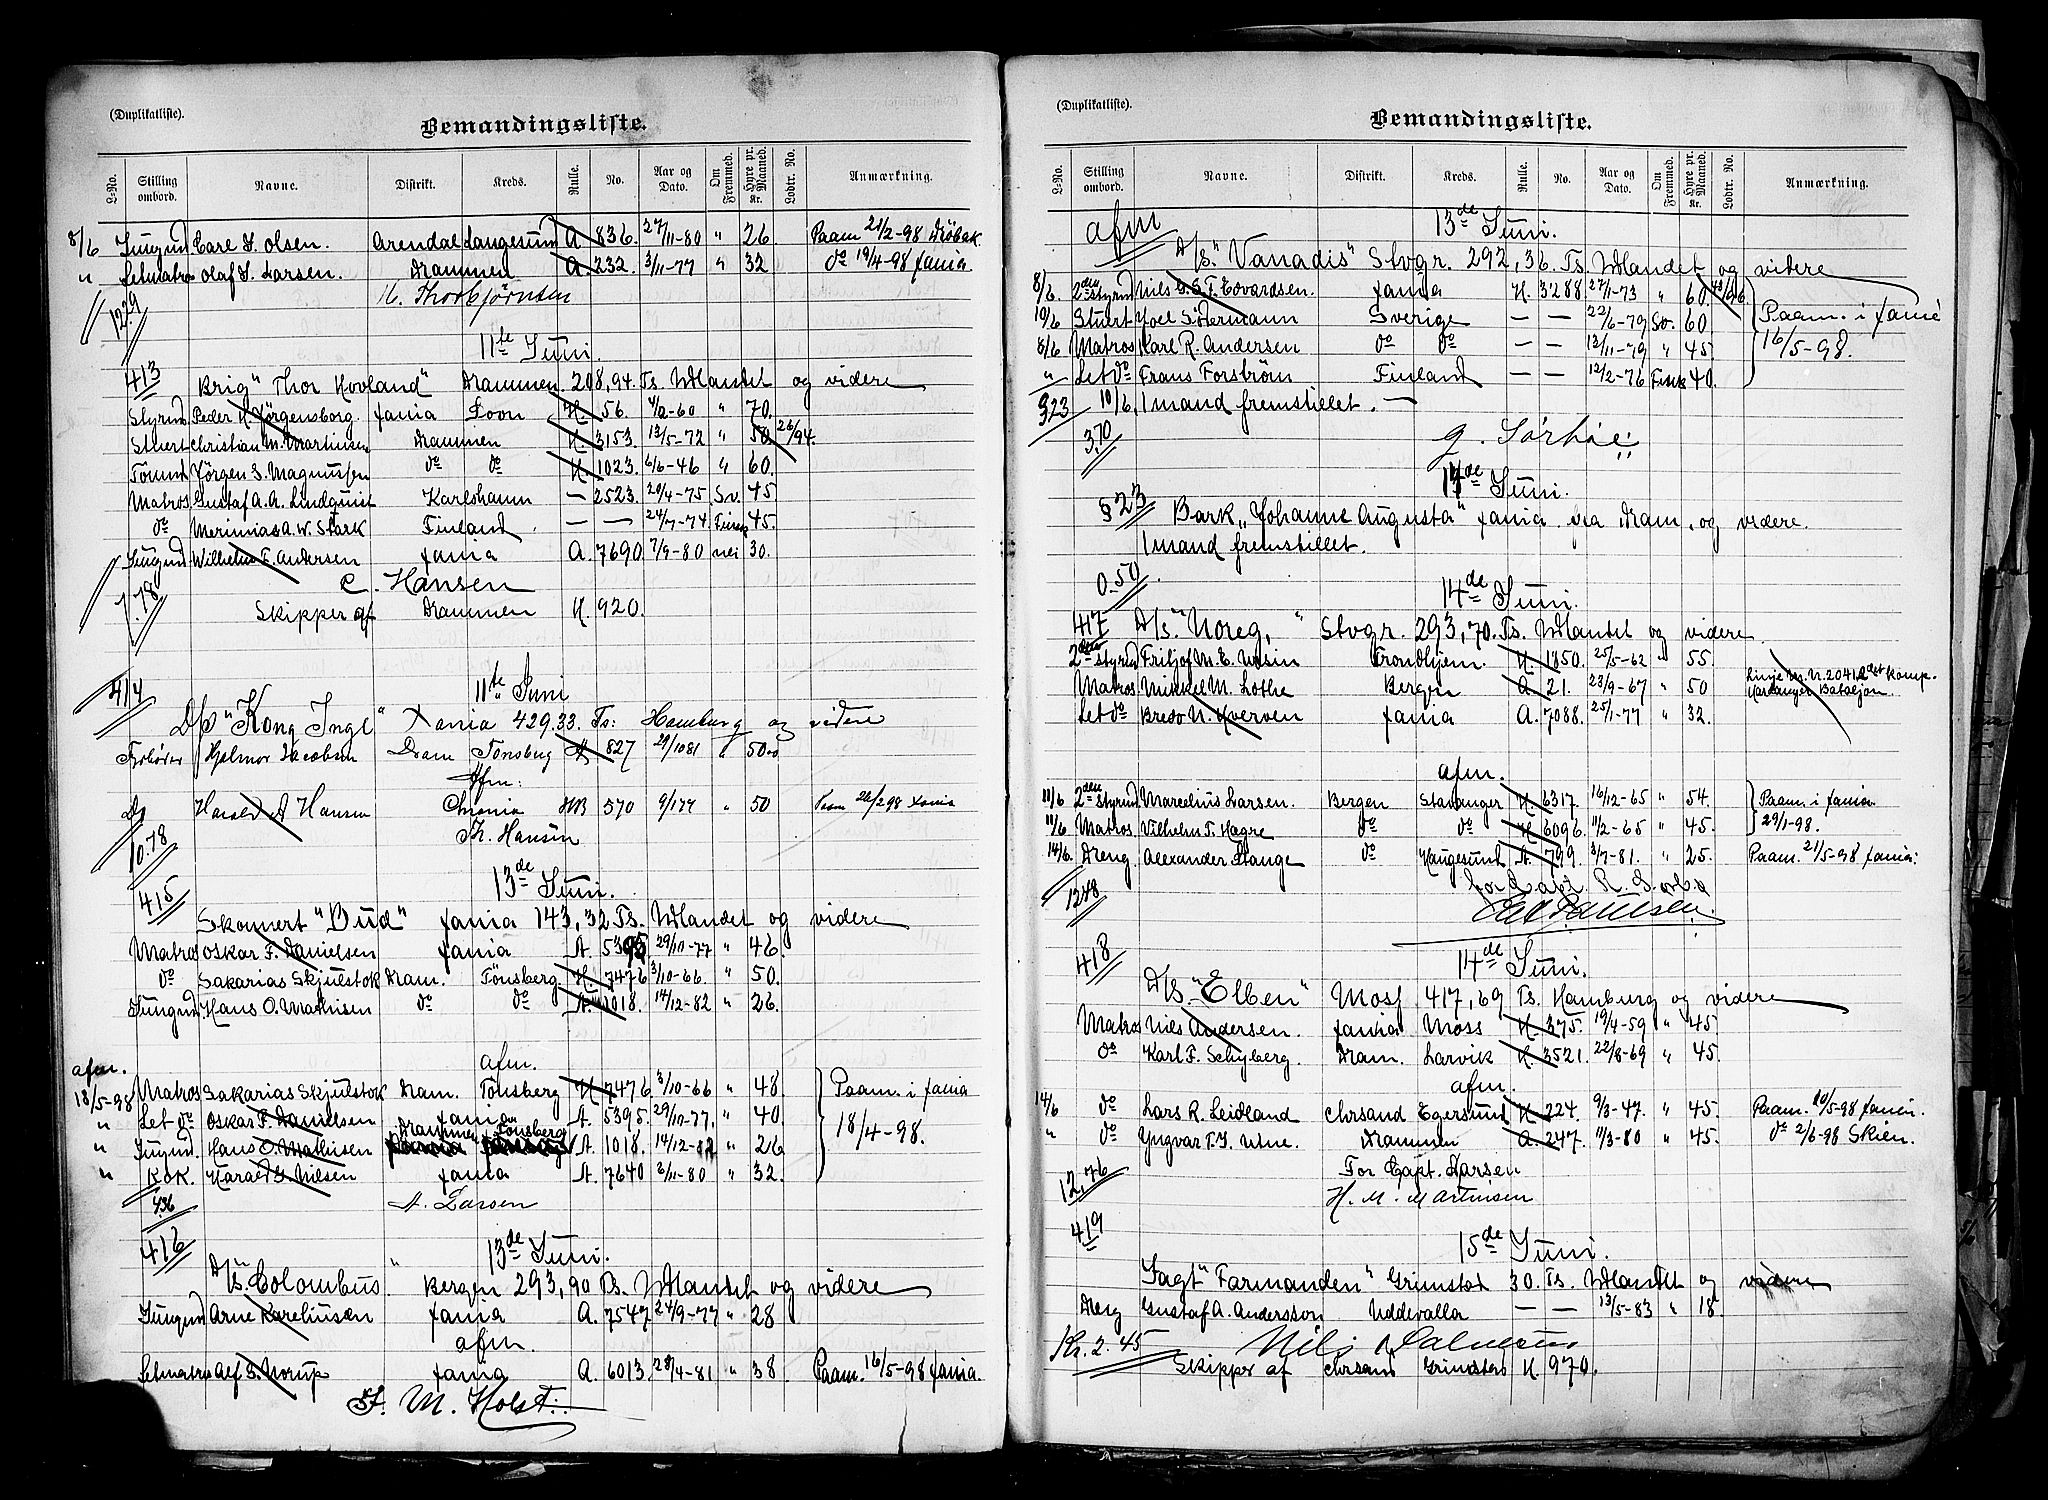 (Duplikatliste).
Bemandingsliste.
L-No. Stilling ombord. Navne. Distrikt. Kreds. Rulle. No. Aar og Dato. Om Fremmed. Hyre pr. Maaned. Kr. Lodtr. No. Anmærkning.
8/6 Jungmd Carl J. Olsen. Arendal Langesund A 836. 27/11-80 " 26 Paam 21/2-98 Drøbak
" Letmatros Olaf J. Larsen. Drammen A. 232. 3/11-77 " 32 do 19/4-98 Xania
Thorbjørnsen
1229
11te Juni.
413
Brig "Thor Hovland" Drammen 208,94. Ts. Udlandet og videre
Styrmd Peder K. Jörgensborg. Xania Soon H. 56. 4/2-60 " 70.
Stuert Christian M. Martinsen Drammen H. 3153. 13/5-72 " 50. 26/94.
Tömmt Jörgen S. Magnussen do do H. 1023. 6/6-46 " 60.
Matros Gustaf A. A. Lindquist Karlshamn — 2523. 20/4-75 Sv. 45
do A. W. Stark Finland — — 24/7-74 Finsk 45.
Jungmd Wilhelm F. Andersen Xania A. 7690 7/9-80 nei 30.
7.78 C. Hansen
Skipper af Drammen H. 920.
414 11te Juni
D/S "Kong Inge" Xania 429.33. Ts: Hamburg og videre
Fyrböter Hjalmar Jacobsen Dram Tönsberg A 827 29/10 81 " 50 00
Afm:
Do Harald A Hansen Chrania 570 9/1 77 " 50 Paam 22/2 98 Xania
Th. Hansen
10.78
13de Juni.
415
Skonnert "Bud" Xania 143,32 Ts. Udlandet og videre
Matros Oskar F. Danielsen Xania A. 5395 29/10-77 " 46.
do Sakarias Skjulstok Dram. Tönsberg. H. 7476 3/10-66. " 50.
Jungmd. Hans O. Mathisen do do A. 1018. 14/12-82 " 26.
afm. afm.
18/5-98 Matros Sakarias Skjulstok Dram. Tönsberg H 7476 3/10-66 " 48. Paam. i Xania
" Let do Oskar F. Danielsen Xania A. 5395. 29/10-77. " 40. 18/4-98.
" Jungmd. Hans O. Mathisen Drammen Tönsberg A. 1018. 14/12-82 " 26
" Kok. Harald G. Nilsen Xania A. 7640 6/11-80 " 32.
436 A. Larsen
416 13de Juni.
D/S. "Colombus" Bergen 293,90 Ts. Udlandet og videre
Jungmd Arne Kareliusen Xania A. 7547 24/9-77 " 28
afm.
Letmatros Alf S. Norup Xania A. 6013. 28/4-81 " 38 Paam. 16/5-98 Xania.
M. Holst.
(Duplikatliste).
Bemandingsliste.
L-No. Stilling ombord. Navne. Distrikt. Kreds. Rulle. No. Aar og Dato. Om Fremmed. Hyre pr. Maaned. Kr. Lodtr. No. Anmærkning.
afm 13de Juni.
D/S. "Vanadis" Stvgr. 292,36. Ts. Udlandet og videre
8/6. 2den Styrmd Nils G. S. T. Edvardsen. Xania H. 3288. 27/1-73 " 60. Paam. i Xania
10/6 Stuert Joel S. Hermann Sverige — — 22/6-79 Sv. 60. 16/5-98.
8/6 Matros Karl R. Andersen do do — — 12/11-79 " 45
" Let do Frans Forsström Finland — — 12/2-76 Finsk 40.
323 10/6 1 mand fremstillet. —
370 G. Sörhöe
14de Juni.
§23 Bark "Johanne Augusta" Xania fra Dram. og videre.
1 mand fremstillet.
0.50. 14de Juni.
417 D/S. "Noreg," Stvgr. 293,70. Ts. Udlandet og videre.
2den Styrmd Fritjof M. E. Ursin Trondhjem. H. 1850. 25/5-62 " 55.
Matros Minkel M. Lothe Bergen A. 21. 23/9-67 " 50 Linje M. N. 204. 2det Komp. Hardanger Bataljon.
Let do Bredo N. Hverven Xania A. 7088. 25/1-77 " 32.
afm.
11/6 2den Styrmd Marcelius Larsen. Bergen Stavanger H 6317. 16/12-65 " 54. Paam. i Xania
11/6 Matros. Vilhelm T. Hagre do do H 6096. 11/2-65 " 45. 29/1-98.
14/6. Dreng. Alexander Stange do Haugesund A. 799. 3/7-81. " 25. Paam. 21/5-98 Xania.
1248 for Capt.
418 14de Juni.
D/S. "Elben" Moss 417,69 Ts. Hamburg og videre
Matros Nils Andersen. Xania Moss H. 375. 19/4-59 " 45
do Karl F. Schyberg. Dram. Larvik H. 3521. 22/8-69 " 45.
afm.
14/6 do Lars R. Leidland Chrsand Egersund H. 224. 9/3-47. " 45. Paam. 10/5-98 Xania.
" do Yngvar T. J. Drammen A. 247. 11/3-80 " 45. do 2/6-98 Skien.
12,76 For Capt. Larsen
H. M. Martinsen
419 15de Juni.
Jagt "Farmanden" Grimstad 30. Ts. Udlandet og videre
Dreng Gustaf A. Andersson Uddevalla — — 13/5-83 " 18
Kr. 2.45 Nils
Skipper af Chrsand Grimstad H. 970.